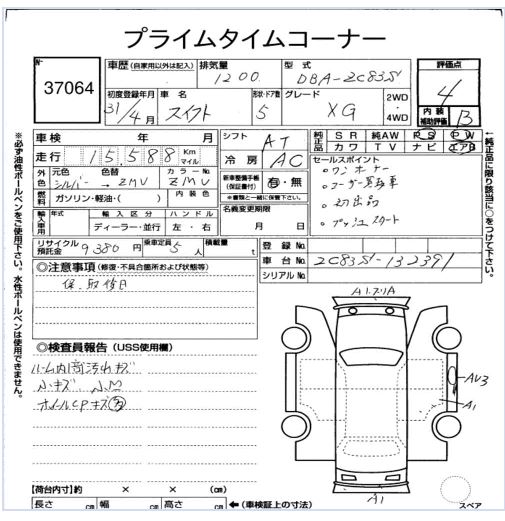 プライムタイムコーナー
No.
37064
車歴(自家用以外は記入)
排気量
1200
型式
DBA-ZC83S
評価点
4
初度登録年月
31/4月
車名
スイフト
形状・ドア数
5
グレード
XG
2WD
・
4WD
内装
補助評価
B
車検 年 月
走行 15,588 Km マイル
シフト AT
冷房 AC
純正品
SR 純AW PS PW
カワ TV ナビ エアB
外色 元色 シルバー → 色替 ZMV カラーNo. ZMV
燃料 ガソリン・軽油・( )
内装色
新車整備手帳
(保証書付)
有・無
※書類と一緒に保管下さい。
セールスポイント
・ワンオーナー
・ユーザー買取車
・初出品
・プッシュスタート
輸入車用 年式
輸入区分
ディーラー・並行
ハンドル
左・右
名義変更期限
月 日
リサイクル預託金 9,380円
乗車定員 5人
積載量 t
登録No.
車台No. ZC83S-132391
シリアルNo.
◎注意事項(修復・不具合箇所および状態等)
保、取後日
◎検査員報告(USS使用欄)
ルーム内荷汚れキズ
小キズ 小凹
ホイールCPキズ
A1.アリA
AU3
A1
A1
【荷台内寸】約 × × (cm)
長さ cm 幅 cm 高さ cm
←(車検証上の寸法)
スペア
※必ず油性ボールペンをご使用下さい。水性ボールペンは使用できません。
←純正品に限り該当に○をつけて下さい。